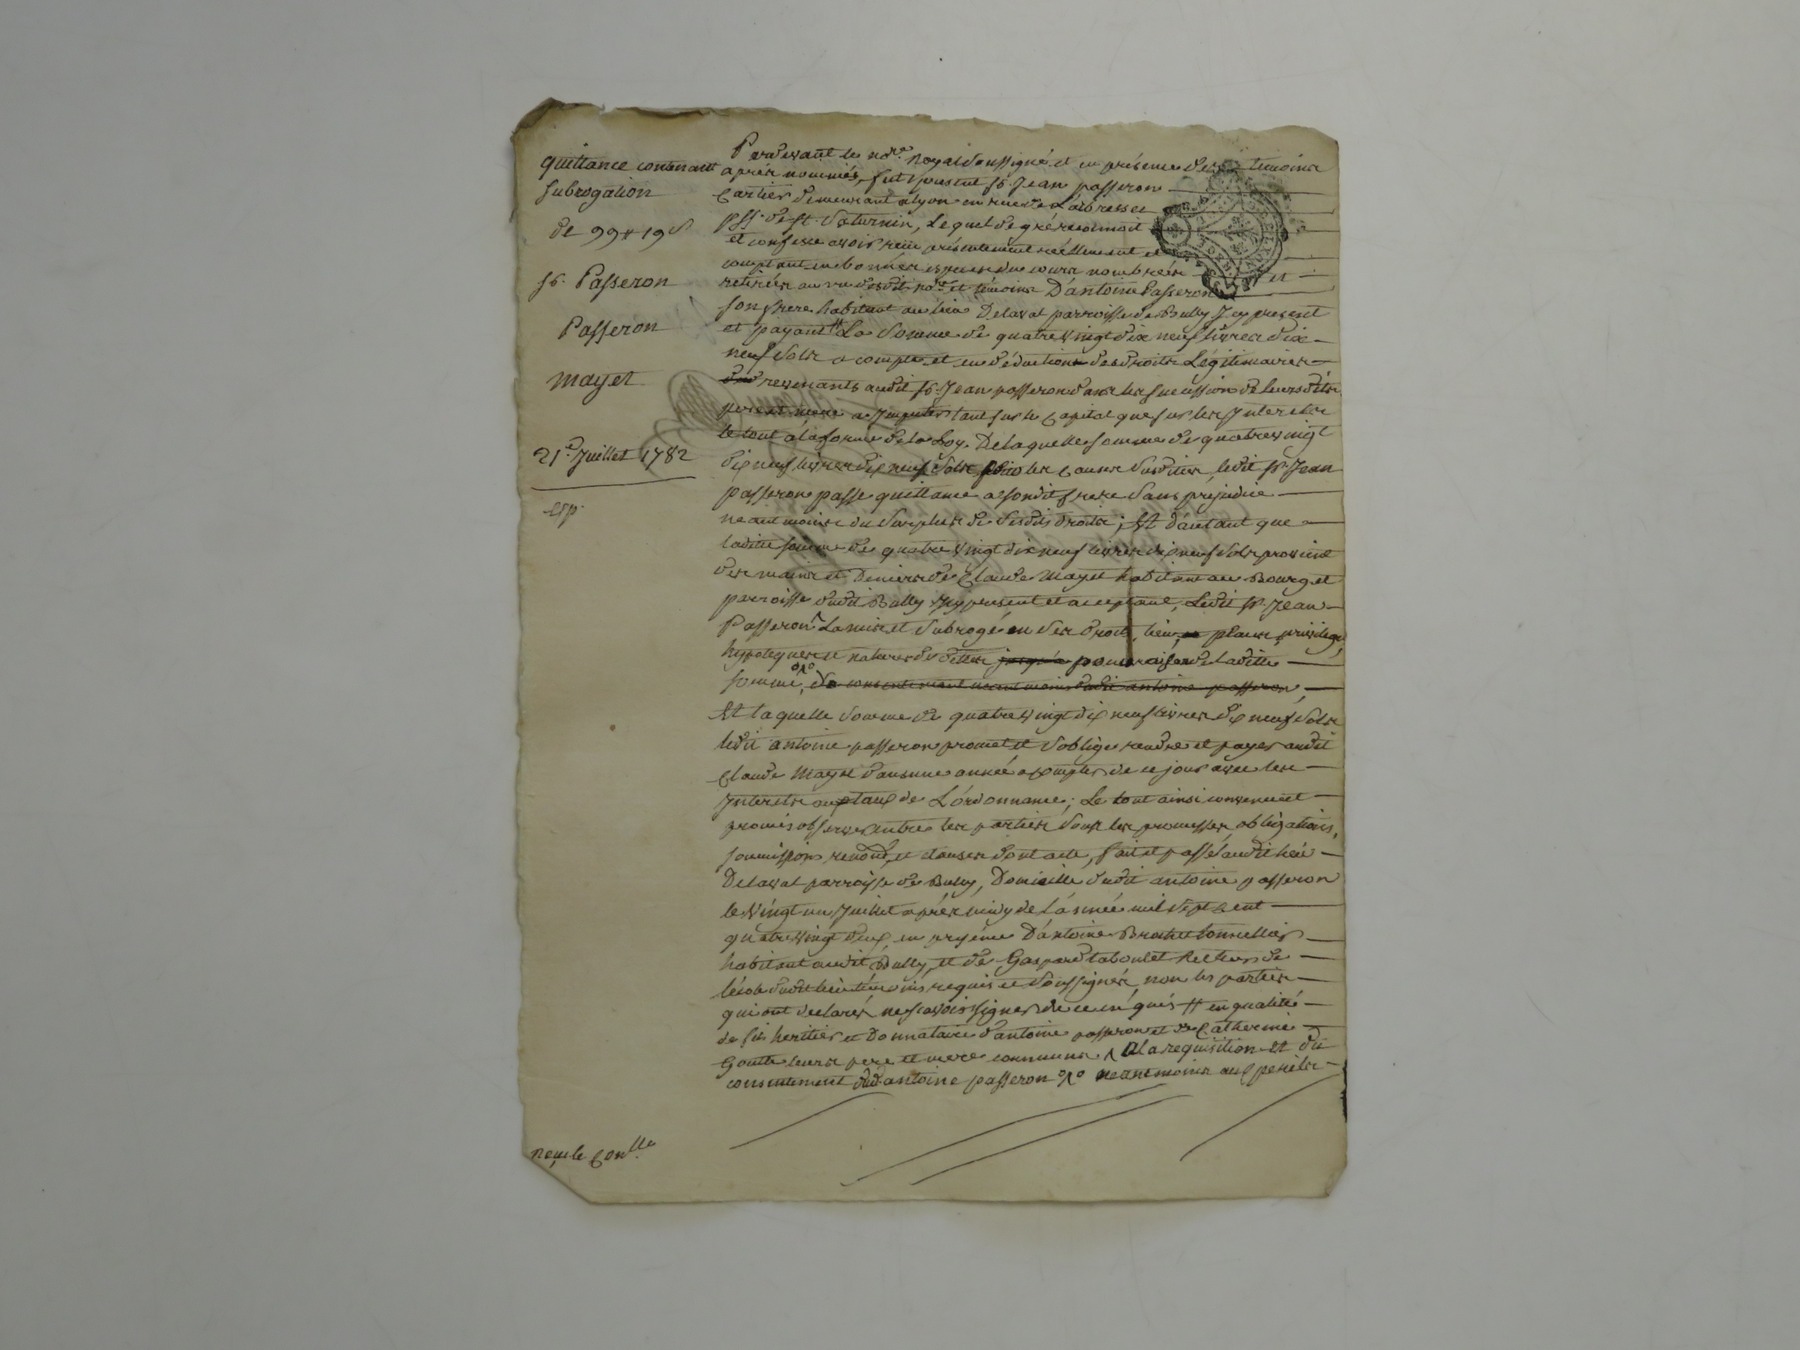 quittance contenant
subrogation
de 99# 19s
sr. Passeron
Passeron
mayet
21e. Juillet 1782
exp.
Pardevant le nore. Royal soussigné et en présence des temoins
après nommés, fut present sr. Jean passeron
cartier demeurant a lyon en rue de
psse. de st. saturnin, Lequel de gré reconnoit
et confesse avoir reçu présentement réellement et
comptant en bonnes especes du cours nombrées et
retirées au vu desdit nore. et témoins D'antoine Passeron
son frere habitant au lieu Delaval parroisse de Bully Icy present
et payant # La somme de quatre vingt dix neuf livres dix
neuf sols a compte et en deduction des droits Légitimaires
revenants audit sr. Jean passeron dans les sucession de leurs dits
pere et mere a Imputer tant sur le capital que sur les Interets
le tout a la forme de la Loy. De laquelle somme de quatre vingt
dix neuf livres dix neuf sols pour les causes susdites, ledit sr. Jean
passeron passe quittance a sondit frere sans prejudice
neantmoins du surplus de sesdits droits; Et d'autant que
ladite somme de quatre vingt dix neuf livres dix neuf sols provient
des mains et Deniers de Claude Mayet habitant au Bourg et
parroisse dudit Bully Icy present et acceptant, Ledit sr. Jean
Passeron L'a mis et subrogé en ses droits, lieu, place, privilege,
hypoteques et natures de dettes jusqu'a pour raison de ladite
somme, du consentement neantmoins dudit antoine passeron,
Et laquelle somme de quatre vingt dix neuf livres dix neuf sols
ledit antoine passeron promet et s'oblige rendre et payer audit
Claude Mayet dans une année a compter de ce jour avec les
Interets au taux de L'ordonnance; Le tout ainsi convenu et
promis observer entre les parties sous les promesses, obligations,
soumissions, renons. et clauses dont acte, fait et passé audit lieu
Delaval parroisse de Bully, Domicille dudit antoine passeron
le vingt un Juillet après midy de L'année mil sept cent
quatre vingt deux, en presence D'antoine Brochet tonnellier
habitant audit Bully, et de Gaspard taboulet Recteur de
lécole dudit lieu témoins requis et soussignés, non les parties
qui ont declarés ne sçavoir signer de ce enquis # en qualité
de fils heritier et Donnataire d'antoine passeron et de Catherine
Goutte leurs pere et mere communs ^ a la requisition et du
consentement dud. antoine passeron o/o neantmoins aux perils